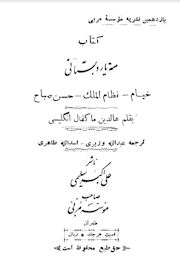 یازدهمین نشریه مؤسسهٔ مربی
کتاب
سه یار دبستانی
خیام - نظام الملک - حسن صباح
بقلم هالدین ماکفال انگلیسی
ترجمه عبدالله وزیری - اسدالله طاهری
ناشر
علی اکبر سلیمی
صاحب
مؤسسه مربی
طهران
قیمت هر جلد ۵ ریال
حق طبع محفوظ است